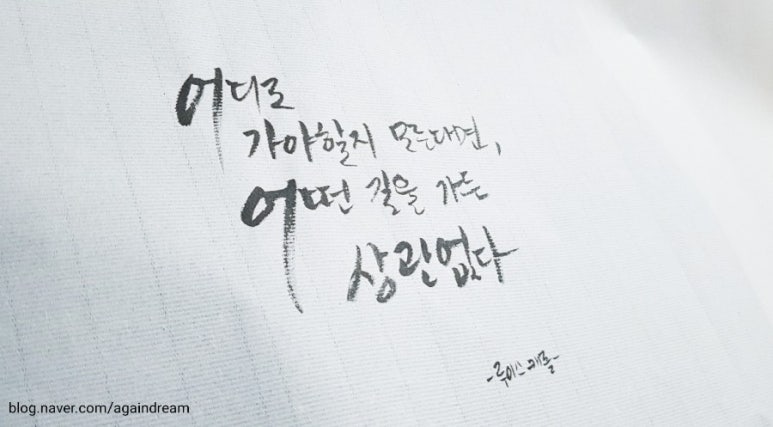 어디로
가야할지 모른다면,
어떤 길을 가든
상관없다
-루이스 캐롤-
blog.naver.com/againdream